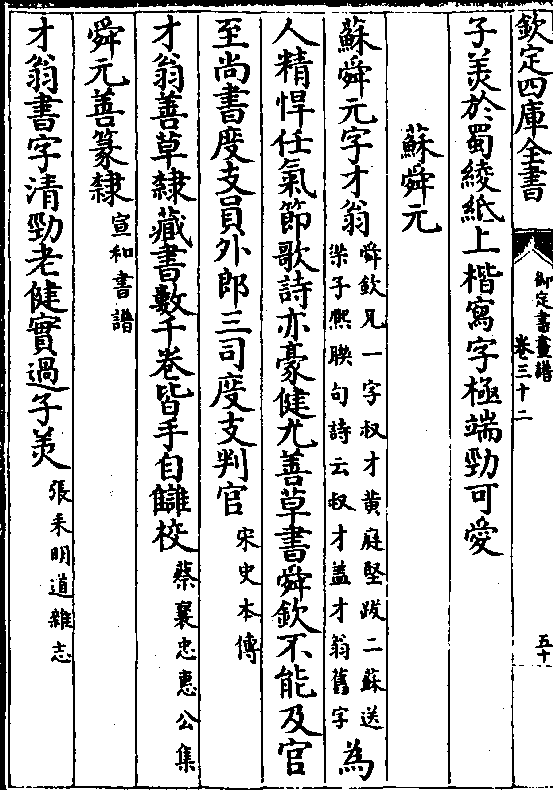 欽定四庫全書
御定書畫譜
卷三十二
五十
子美於蜀綾紙上楷寫字極端勁可愛
蘇舜元
蘇舜元字才翁
舜欽兄一字叔才黄庭堅跋二蘇送
梁子熈聨句詩云叔才蓋才翁舊字
為
人精悍任氣節歌詩亦豪健尤善草書舜欽不能及官
至尚書度支員外郎三司度支判官
宋史本傳
才翁善草隸藏書數千卷皆手自讎校
蔡襄忠惠公集
舜元善篆隸
宣和書譜
才翁書字清勁老健實過子美
張耒明道雜志